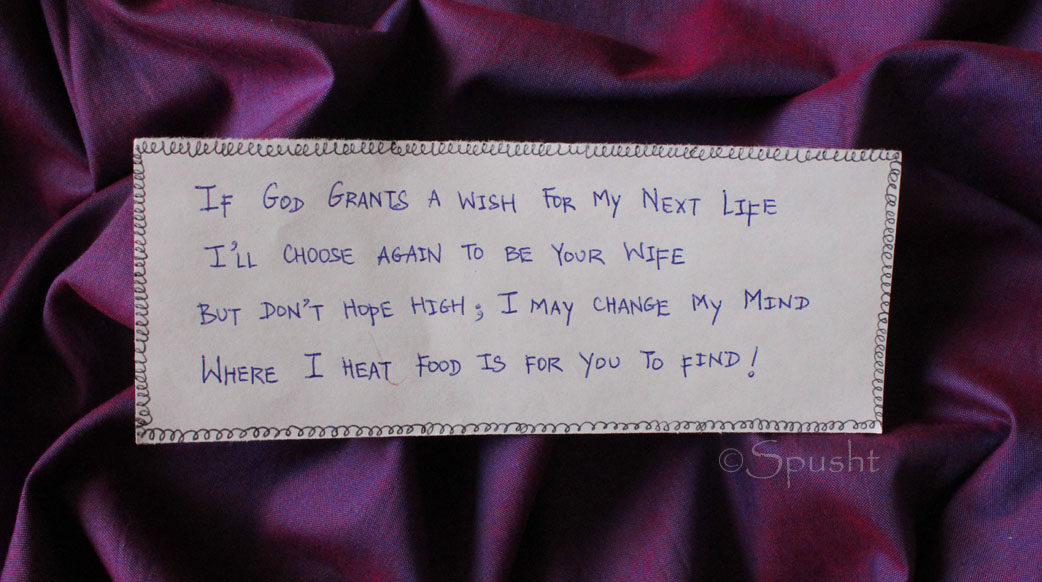 If God Grants a wish for my Next Life
I'll choose again to be your wife
But don't hope high; I may change my Mind
Where I heat food is for you to find!
©Spusht